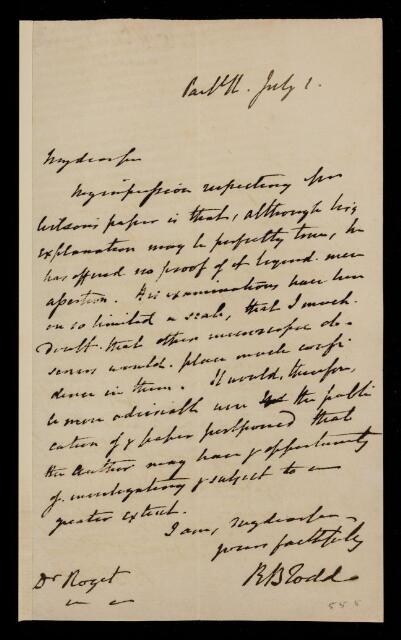 Parlt St. July 1.
My dear Sir
My impression respecting Mr
Wilson's paper is that, although his
explanation may be perfectly true, he
has offered no proof of it beyond mere
assertion. His examinations have been
on so limited a scale, that I much
doubt that other microscopic ob-
servers would place much confi
dence in them. It would, therefore,
be more advisable were the publi
cation of ye paper postponed that
the Author may have ye opportunity
of investigating ye subject to a
greater extent.
I am, my dear Sir
yours faithfully
R B Todd
Dr Roget
555